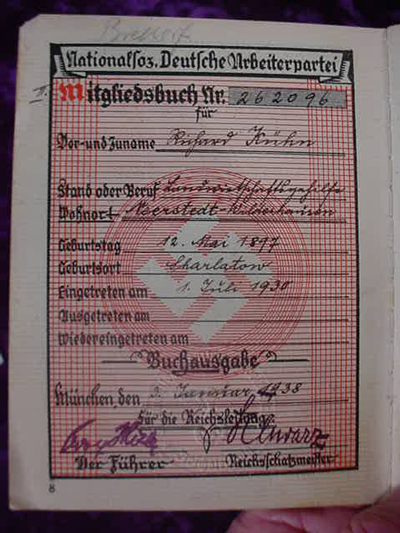 Nationalsoz. Deutsche Arbeiterpartei
II.
Mitgliedsbuch Nr. 262096
für
Vor- und Zuname Richard Kühn
Stand oder Beruf Landwirtschaftsgehilfe
Wohnort Neerstedt-Wildeshausen
Geburtstag 12. Mai 1897
Geburtsort Charlatow
Eingetreten am 1. Juli 1930
Ausgetreten am
Wiedereingetreten am
Buchausgabe
München, den 3. Januar 1938
Für die Reichsleitung
Schwarz
Der Führer Reichsschatzmeister
8